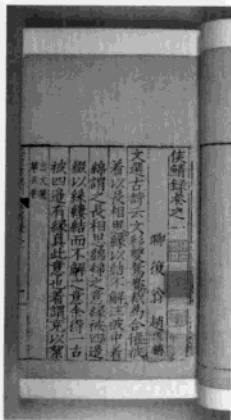 侯鯖録卷之一
聊復翁 趙
文選古詩云文彩雙鴛鴦裁為合懽被
着以長相思緣以結不解注被中着
綿謂之長相思綿綿之意緣被四邉
綴以絲縷結而不解之意余得一古
被四邉有緣真此意也着謂充以絮